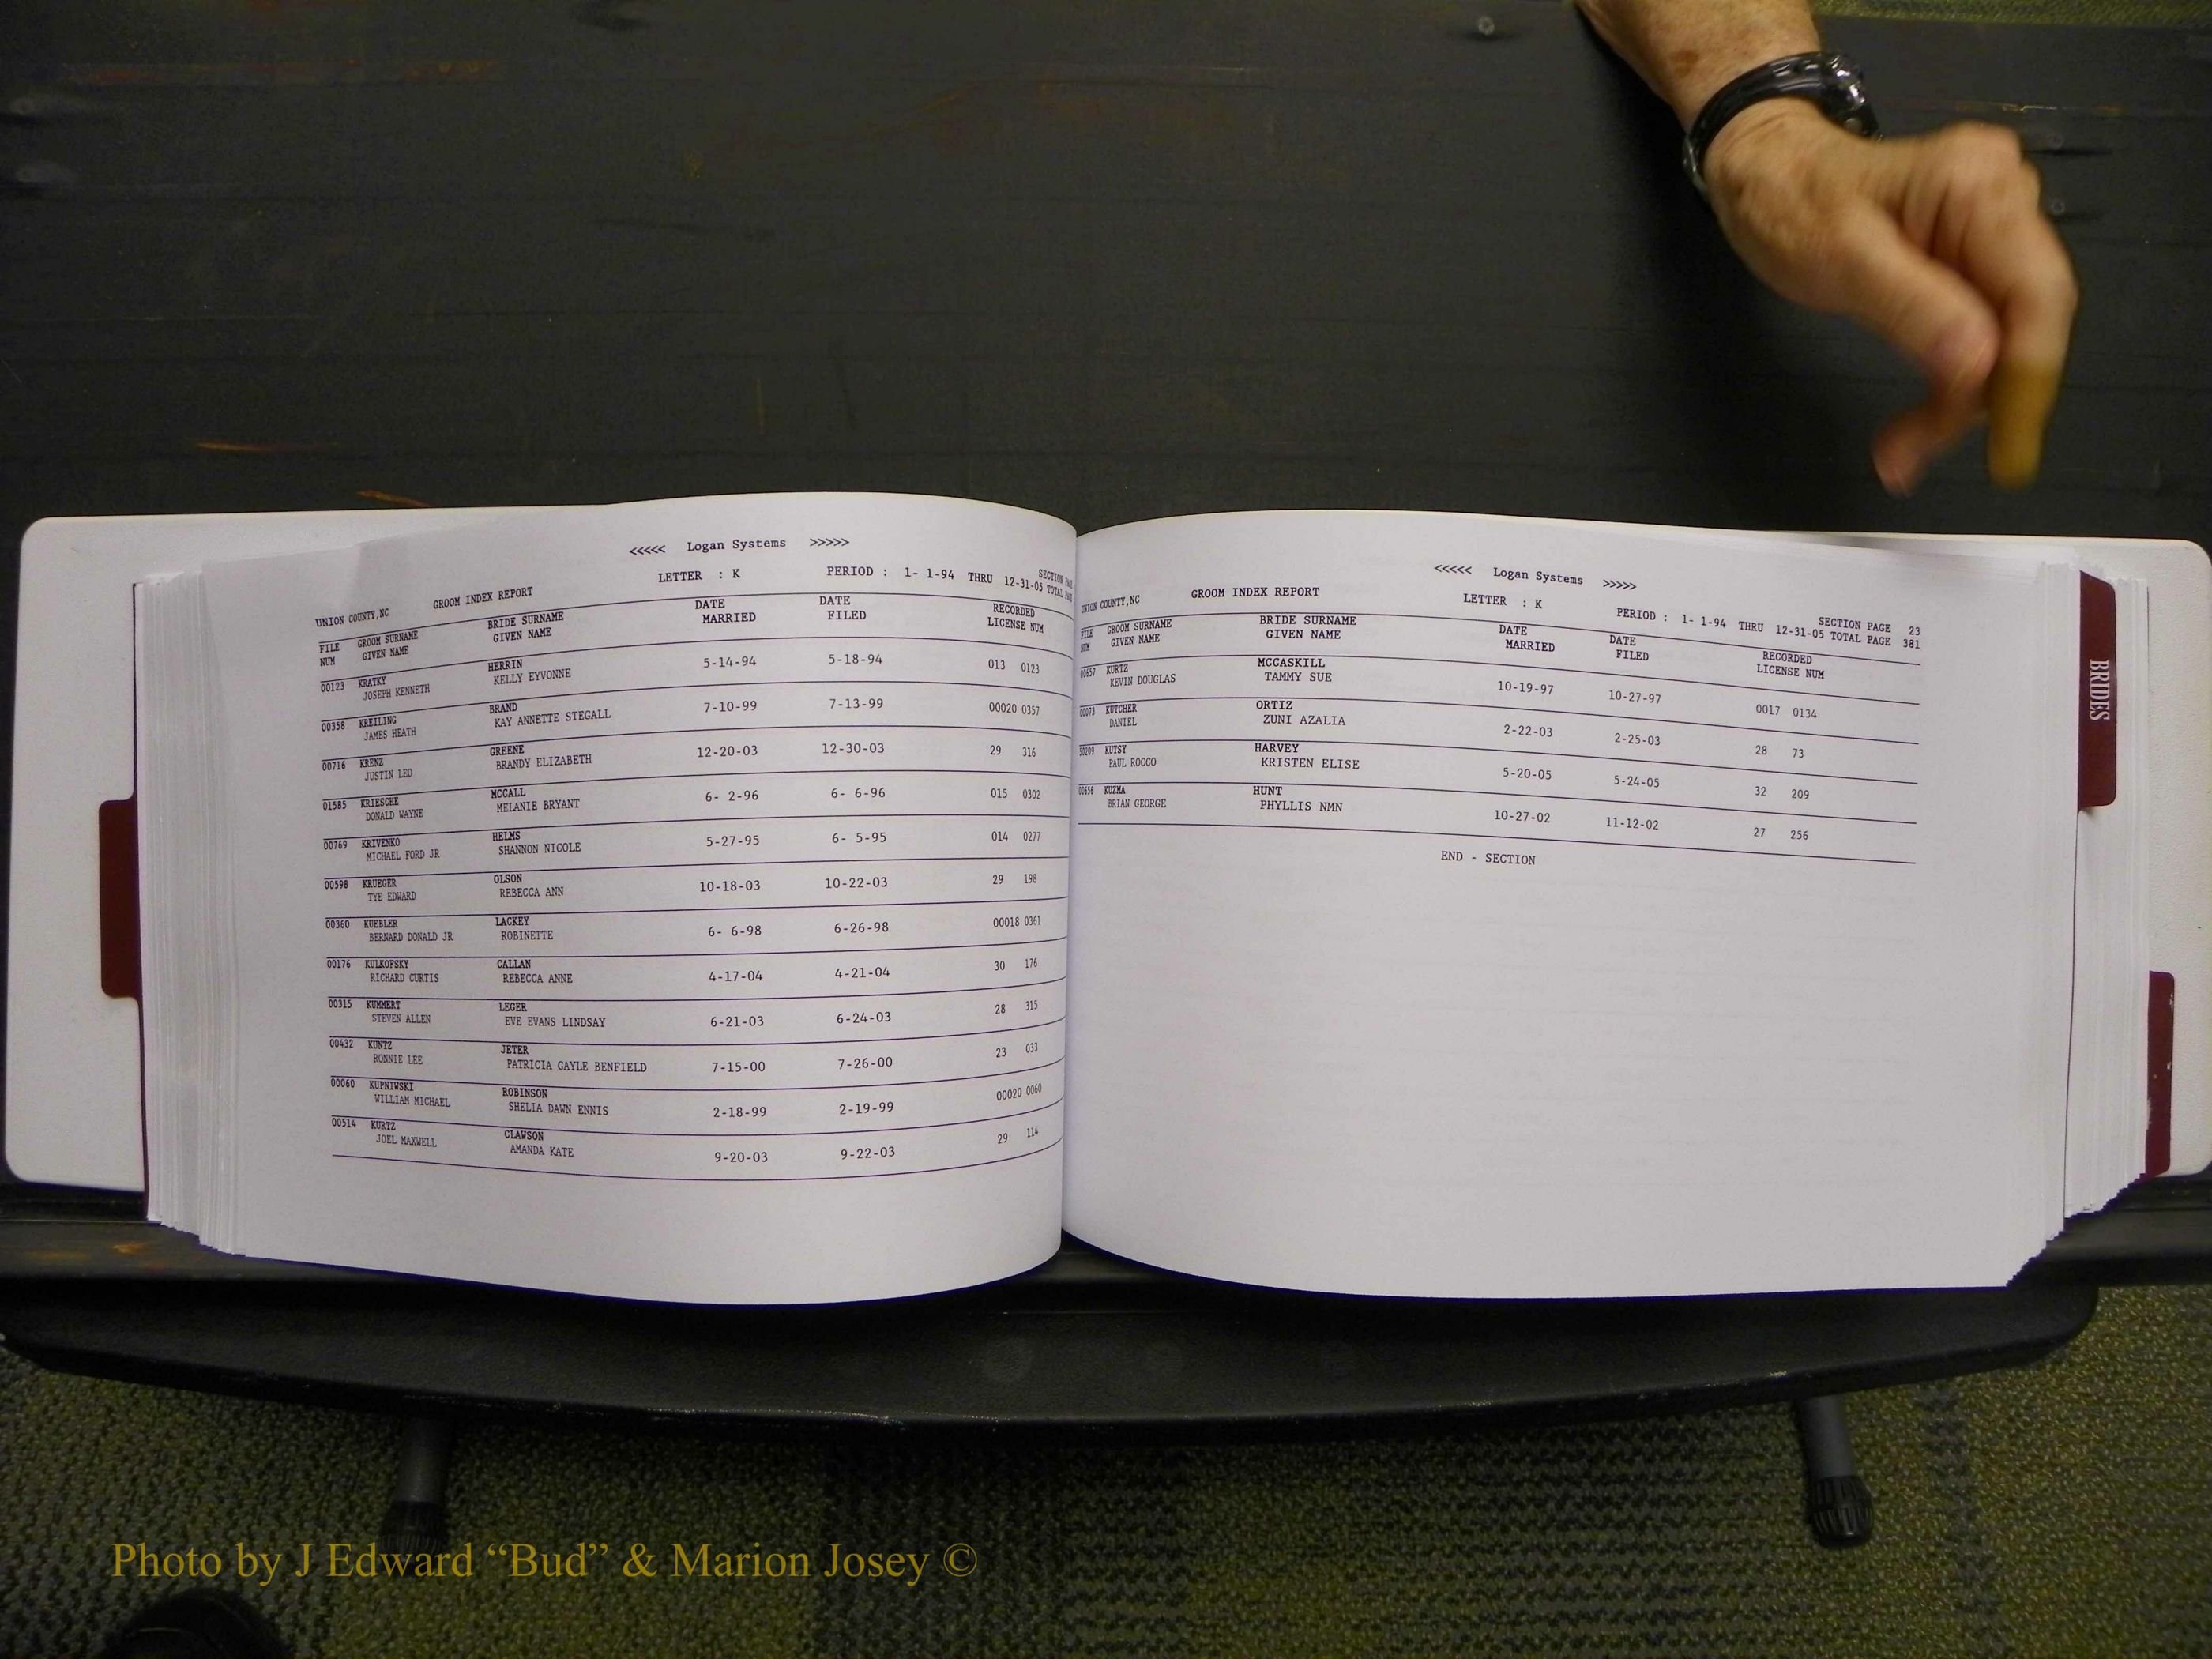 <<<<< Logan Systems >>>>>
UNION COUNTY,NC GROOM INDEX REPORT LETTER : K PERIOD : 1- 1-94 THRU 12-31-05 SECTION
TOTAL
FILE GROOM SURNAME BRIDE SURNAME DATE DATE RECORDED
NUM GIVEN NAME GIVEN NAME MARRIED FILED LICENSE NUM
00123 KRATKY HERRIN 5-14-94 5-18-94 013 0123
JOSEPH KENNETH KELLY EYVONNE
00358 KREILING BRAND 7-10-99 7-13-99 00020 0357
JAMES HEATH KAY ANNETTE STEGALL
00716 KRENZ GREENE 12-20-03 12-30-03 29 316
JUSTIN LEO BRANDY ELIZABETH
01585 KRIESCHE MCCALL 6- 2-96 6- 6-96 015 0302
DONALD WAYNE MELANIE BRYANT
00769 KRIVENKO HELMS 5-27-95 6- 5-95 014 0277
MICHAEL FORD JR SHANNON NICOLE
00598 KRUEGER OLSON 10-18-03 10-22-03 29 198
TYE EDWARD REBECCA ANN
00360 KUEBLER LACKEY 6- 6-98 6-26-98 00018 0361
BERNARD DONALD JR ROBINETTE
00176 KULKOFSKY CALLAN 4-17-04 4-21-04 30 176
RICHARD CURTIS REBECCA ANNE
00315 KUMMERT LEGER 6-21-03 6-24-03 28 315
STEVEN ALLEN EVE EVANS LINDSAY
00432 KUNTZ JETER 7-15-00 7-26-00 23 033
RONNIE LEE PATRICIA GAYLE BENFIELD
00060 KUPNIWSKI ROBINSON 2-18-99 2-19-99 00020 0060
WILLIAM MICHAEL SHELIA DAWN ENNIS
00514 KURTZ CLAWSON 9-20-03 9-22-03 29 114
JOEL MAXWELL AMANDA KATE
<<<<< Logan Systems >>>>>
UNION COUNTY,NC GROOM INDEX REPORT LETTER : K PERIOD : 1- 1-94 THRU 12-31-05 SECTION PAGE 23
TOTAL PAGE 381
FILE GROOM SURNAME BRIDE SURNAME DATE DATE RECORDED
NUM GIVEN NAME GIVEN NAME MARRIED FILED LICENSE NUM
00657 KURTZ MCCASKILL 10-19-97 10-27-97 0017 0134
KEVIN DOUGLAS TAMMY SUE
00073 KUTCHER ORTIZ 2-22-03 2-25-03 28 73
DANIEL ZUNI AZALIA
50209 KUTSY HARVEY 5-20-05 5-24-05 32 209
PAUL ROCCO KRISTEN ELISE
00656 KUZMA HUNT 10-27-02 11-12-02 27 256
BRIAN GEORGE PHYLLIS NMN
END - SECTION
BRIDES
Photo by J Edward “Bud” & Marion Josey ©